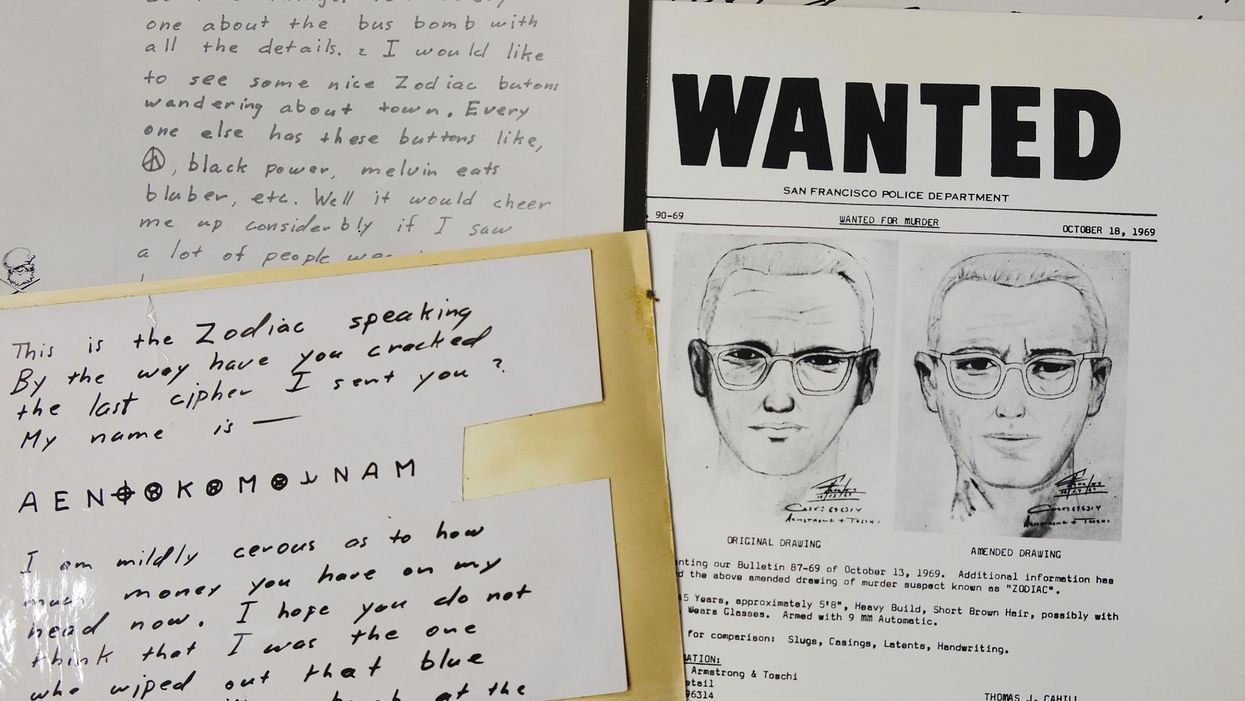 one about the bus bomb with
all the details. I would like
to see some nice Zodiac butons
wandering about town. Every
one else has these buttons like,
, black power, melvin eats
bluber, etc. Well it would cheer
me up considerbly if I saw
a lot of people
This is the Zodiac speaking
By the way have you cracked
the last cipher I sent you ?
My name is —
A E N K M N A M
I am mildly cerous as to how
much money you have on my
head now. I hope you do not
think that I was the one
who wiped out that blue
at the
WANTED
SAN FRANCISCO POLICE DEPARTMENT
90-69 WANTED FOR MURDER OCTOBER 18, 1969
ORIGINAL DRAWING AMENDED DRAWING
our Bulletin 87-69 of October 13, 1969. Additional information has
the above amended drawing of murder suspect known as "ZODIAC".
Years, approximately 5'8", Heavy Build, Short Brown Hair, possibly with
Wears Glasses. Armed with 9 MM Automatic.
for comparison: Slugs, Casings, Latents, Handwriting.
Armstrong & Toschi
96314
THOMAS J. CAHILL